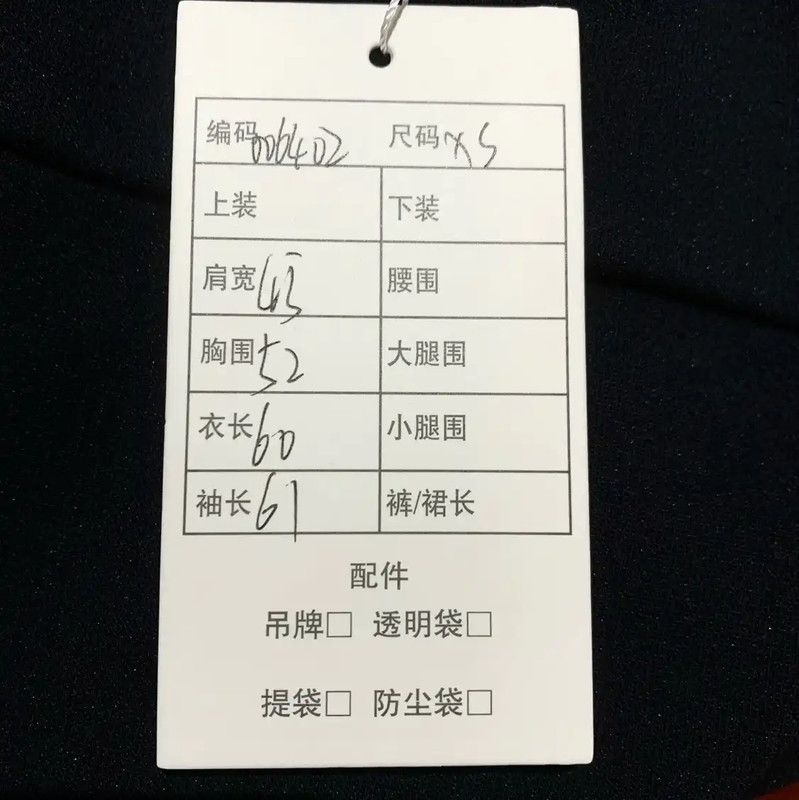 编码 006402 尺码 XS
上装 下装
肩宽 45 腰围
胸围 52 大腿围
衣长 60 小腿围
袖长 61 裤/裙长
配件
吊牌□ 透明袋□
提袋□ 防尘袋□